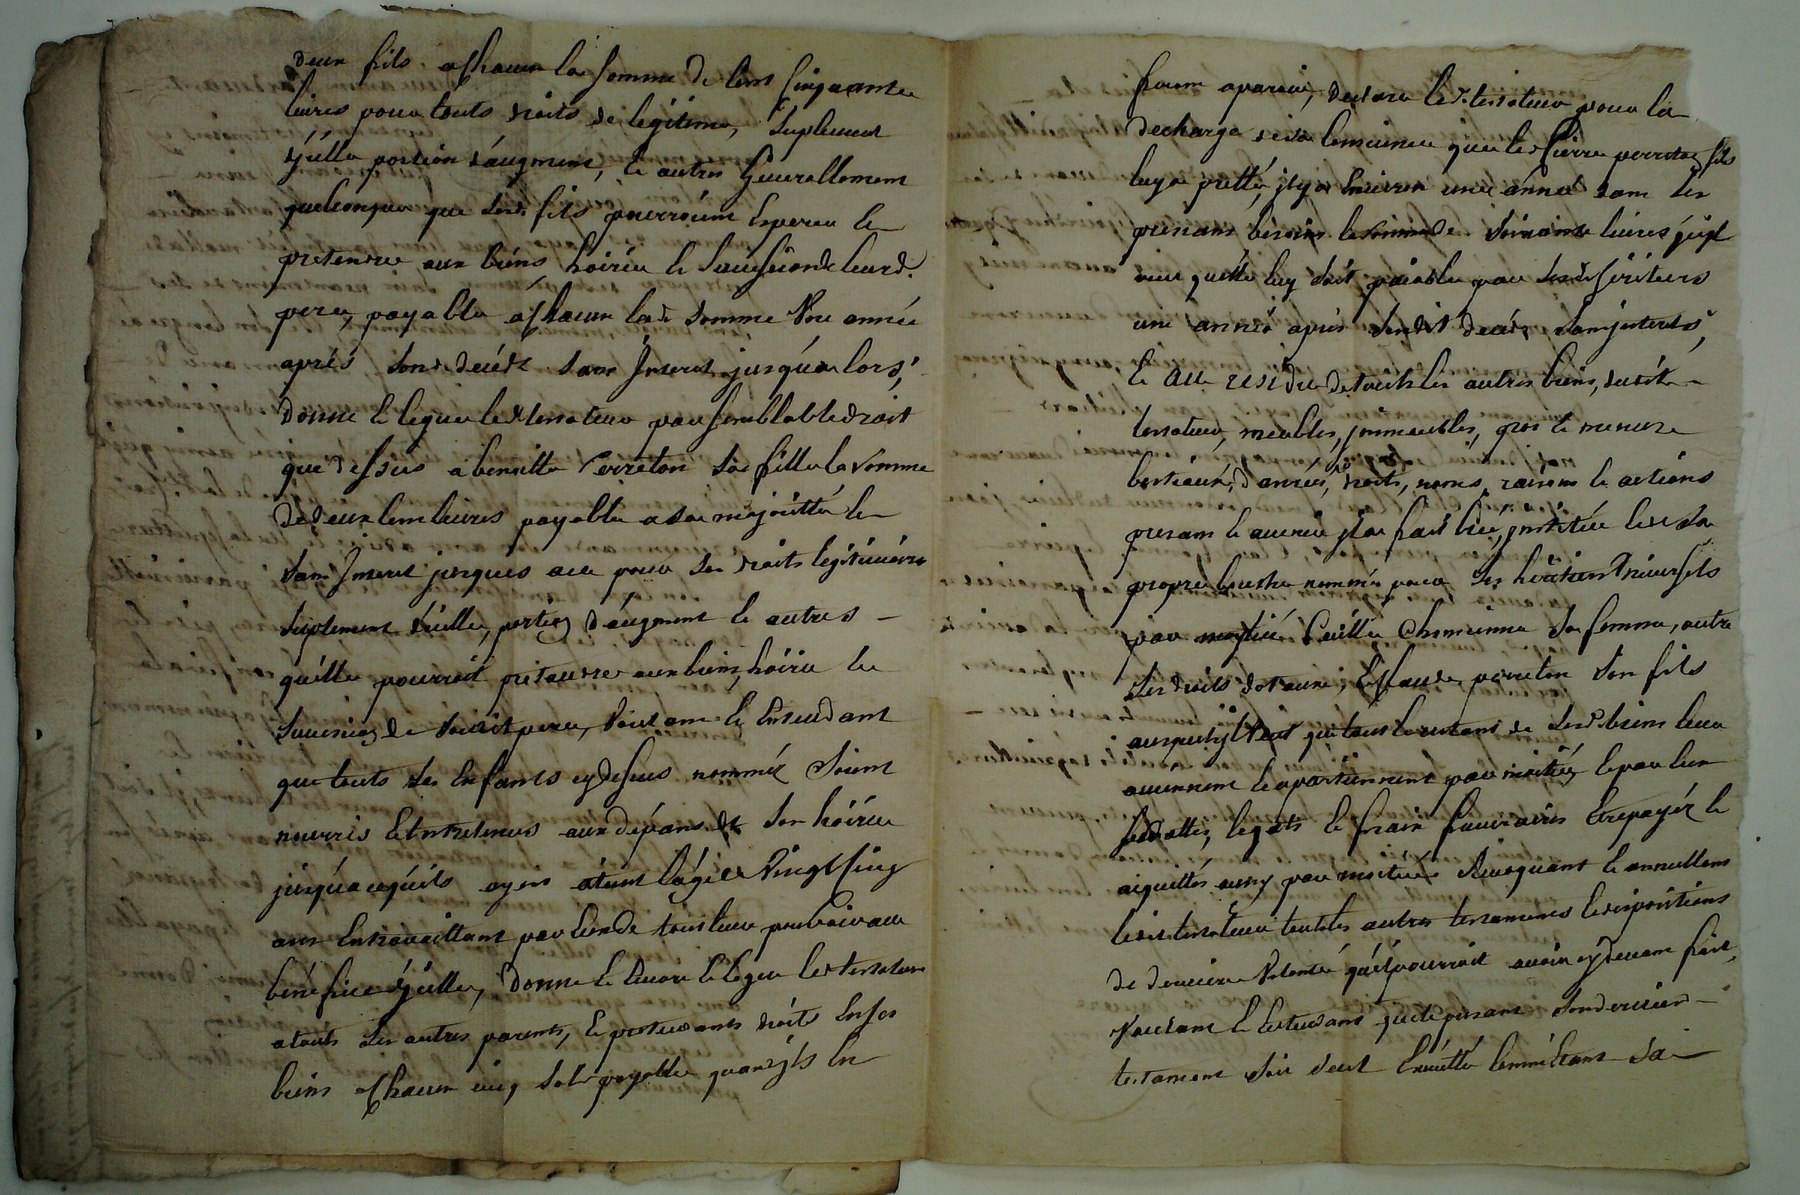 deux fils a chacun la somme de cent cinquante
livres pour touts droits de légitime, suplement
d'jcelle portion d'augment, et autres generallement
quelconque que sesd. fils pourroient esperer et
pretendre aux biens hoirie et succession de leurd.
pere, payable a chacun lad. somme une année
aprés sond. decéds sans jnterest jusqu'alors,
donne et legue led. testateur par semblable droit
que dessus a benoitte Perreton sa fille la somme
de deux cent livres payable a sa majoritté et
sans jnterest jusques a ce pour ses droits légitimaires
suplement d'icelle, portion d'augment et autres
qu'elle pourroit pretendre aux biens, hoirie et
succession de sondit pere, voulant et entendant
que touts ses enfants cy dessus nommés soient
nourris et entretenus aux dépans de son hoirie
jusqu'a ce qu'ils ayent atteint l'age de vingt cinq
ans en travaillant par eux de tout leur pouvoir au
bénéfice d'jcelle, donne et encore legue led. testateur
a touts ses autres parents, et pretendants droits en ses
biens a chacun cinq sols payable quand jls en
feront aparoir, declare led. testateur pour la
decharge de sa conscience que led. Pierre perreton fils
luy a pretté, jl y a environ une année dans ses
presans besoins la somme de soixante livres qu'jl
veut qu'elle luy soit paiable par sesd. heritiers
une année apres sondit deceds sans jnterests,
et au residu de touts les autres biens, dudit
testateur, meubles, jmmeubles, gros et menus
bestiaux, danrées, droits, noms, raisons et actions
presans et avenir jl a fait, créé, jnstitué et de sa
propre bouche nommé pour ses héritiers universels
par moitié sa femme, outre
ses droits dotaux, et claude perreton son fils
auxquels jl veut que tout le restant de sesd. biens leur
aviennent et apartiennent par moitié, et par eux
ses dettes, legats et frais funeraires etre payés et
aiquittés aussy par moitié Revoquant et annullant
ledit testateur touts les autres testaments et dispositions
de derniere volonté qu'il pourroit avoir cy devant fait,
voulant et entendant que le presant son dernier
testament soit seul executté sa